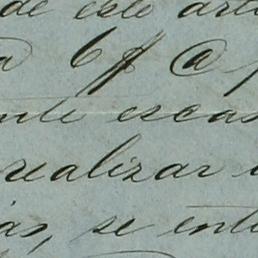 de este arti
a 6 ff @ p
nte escas
realizar
ias, se ente